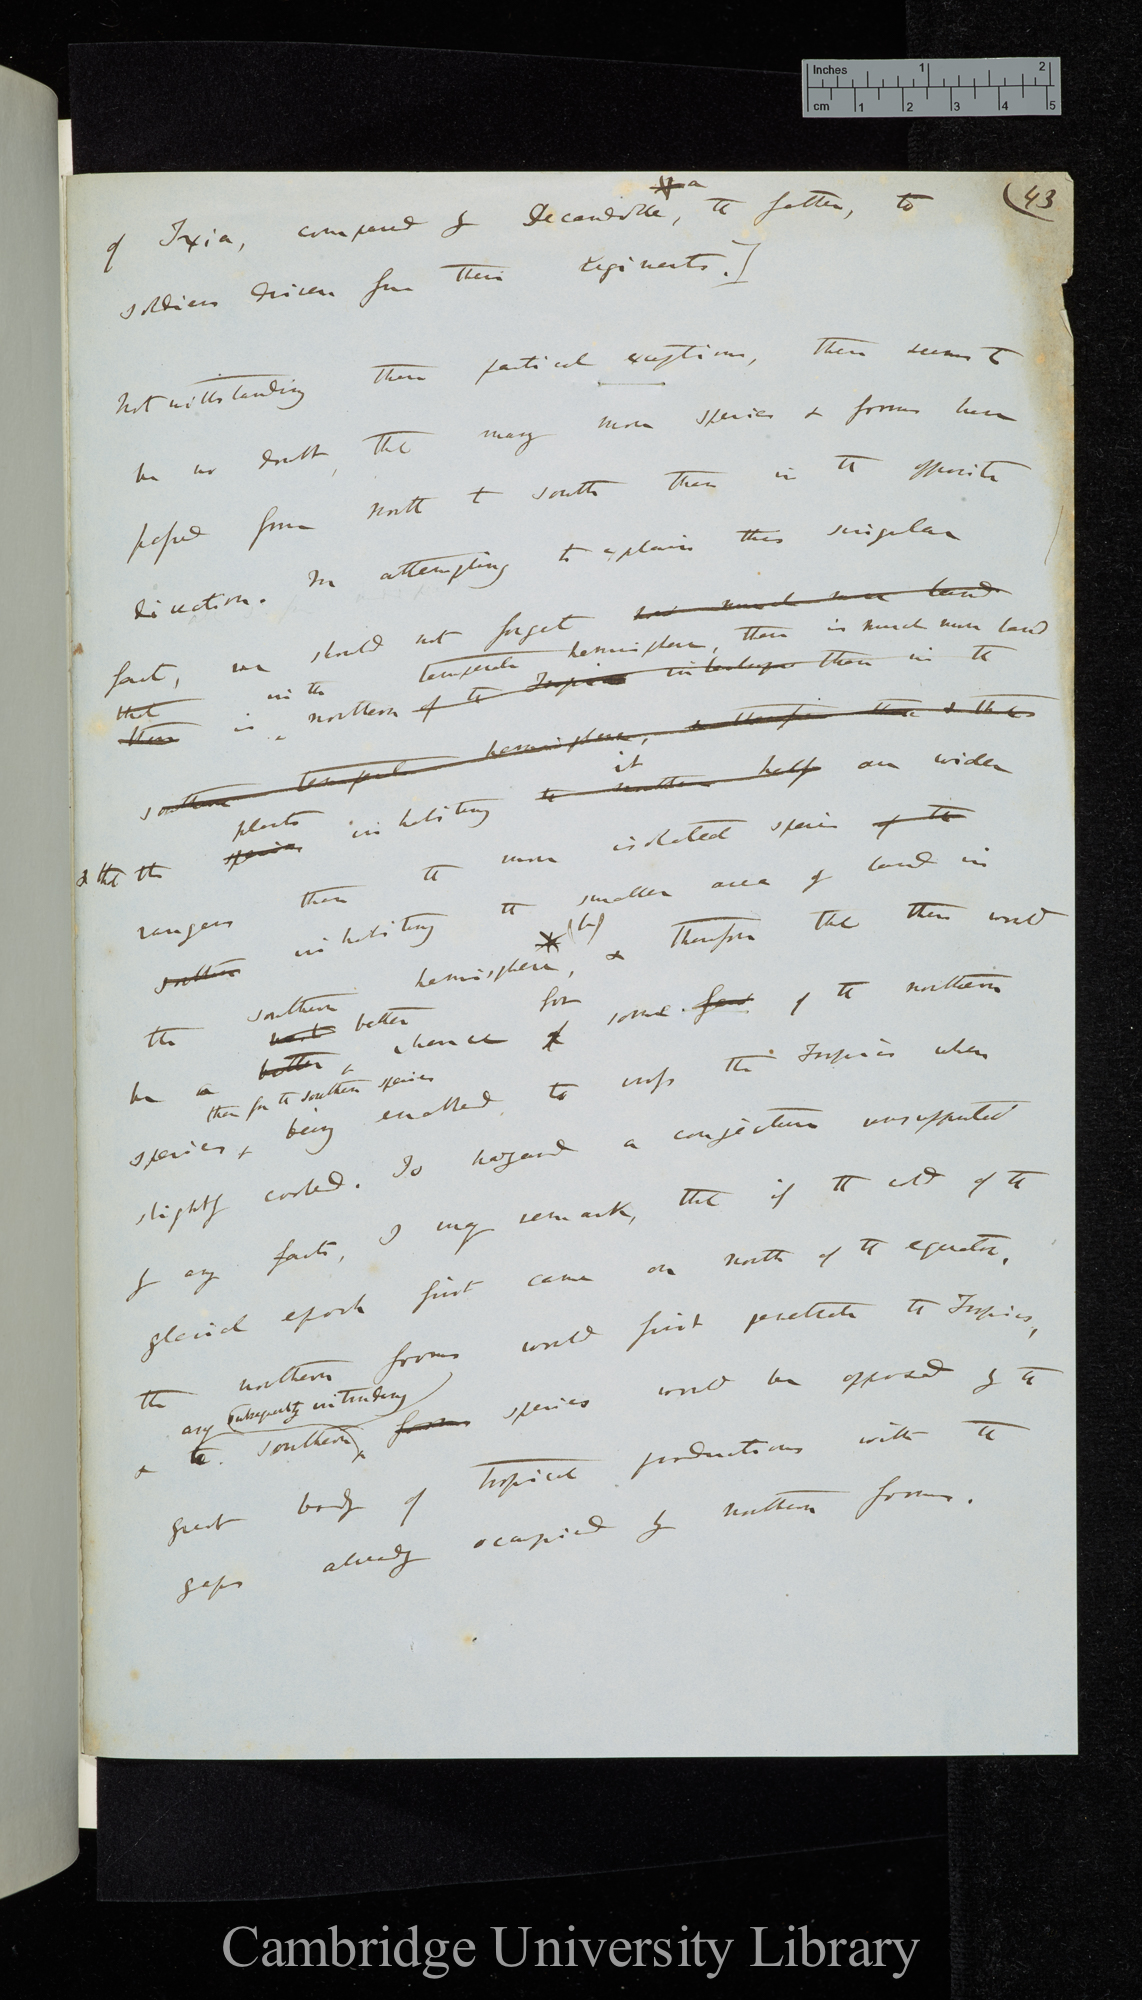 Inches 1 2
cm 1 2 3 4 5
(43
a
of Ixia, compared by Decandolle, the latter, to
soldiers driven from their regiments.]
Notwithstanding these partial exceptions, there seems to
be no doubt, that many more species & forms have
passed from north to south than in the opposite
direction. In attempting to explain this singular
fact, we should not forget how much more land
that in the temperate hemisphere, there is much more land
there is northern of the Tropics in landscape than in the
southern temperate hemisphere, & therefore that
plants it
& that the species inhabiting the northern half are wider
rangers than the more isolated species of the
southern inhabiting the smaller area of land in
the southern hemisphere, (b) & therefore that there would
be a better chance for some of the northern
than for the southern species
species & being enabled to cross the Tropics when
slightly cooled. To hazard a conjecture unsupported
by any facts, I may remark, that if the cold of the
glacial epoch first came on north of the equator,
the northern forms would first penetrate the Tropics,
any subsequently intruding
& the southern forms species would be opposed by the
great body of tropical productions with the
gaps already occupied by northern forms.
Cambridge University Library